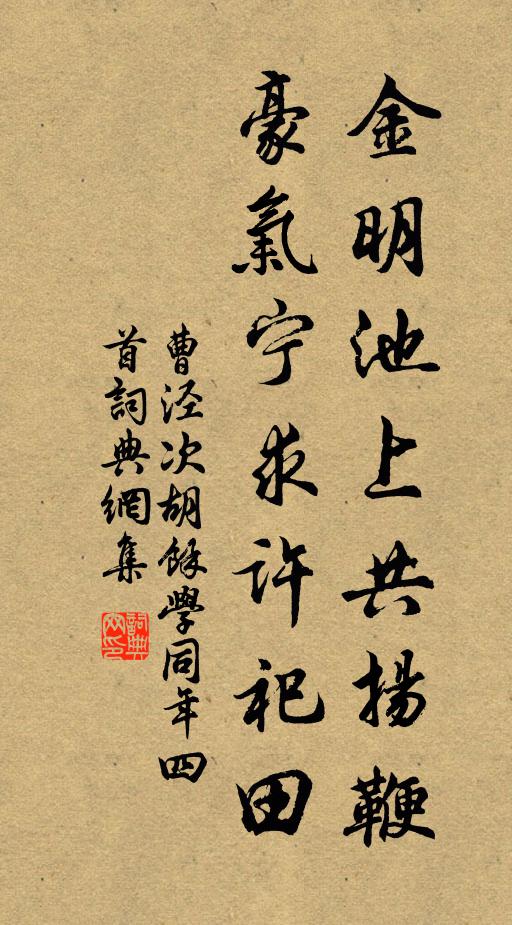 金明池上共揚鞭
豪氣宁求許祀田
曹涇次胡餘學同年四
首詞典網集
詞典網印